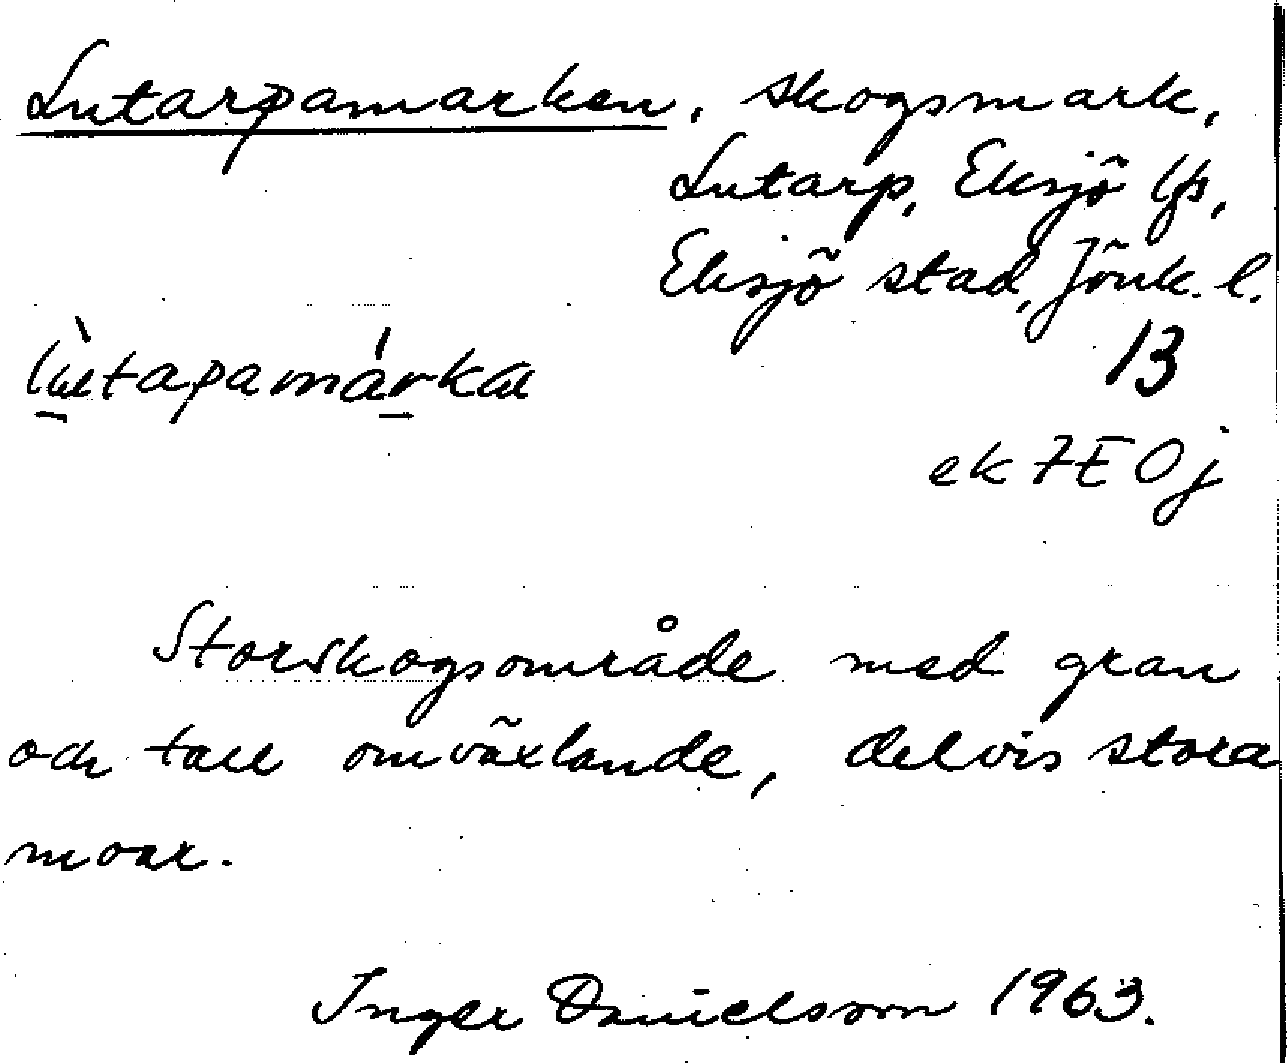 Lutarpamarken, skogsmark,
Lutarp, Eksjö lfs,
Eksjö stad, Jönk. l.
13
ek 7E 0j
Storskogsområde med gran
och tall omväxlande, delvis stora
moar.
Inger Danielsson 1963.